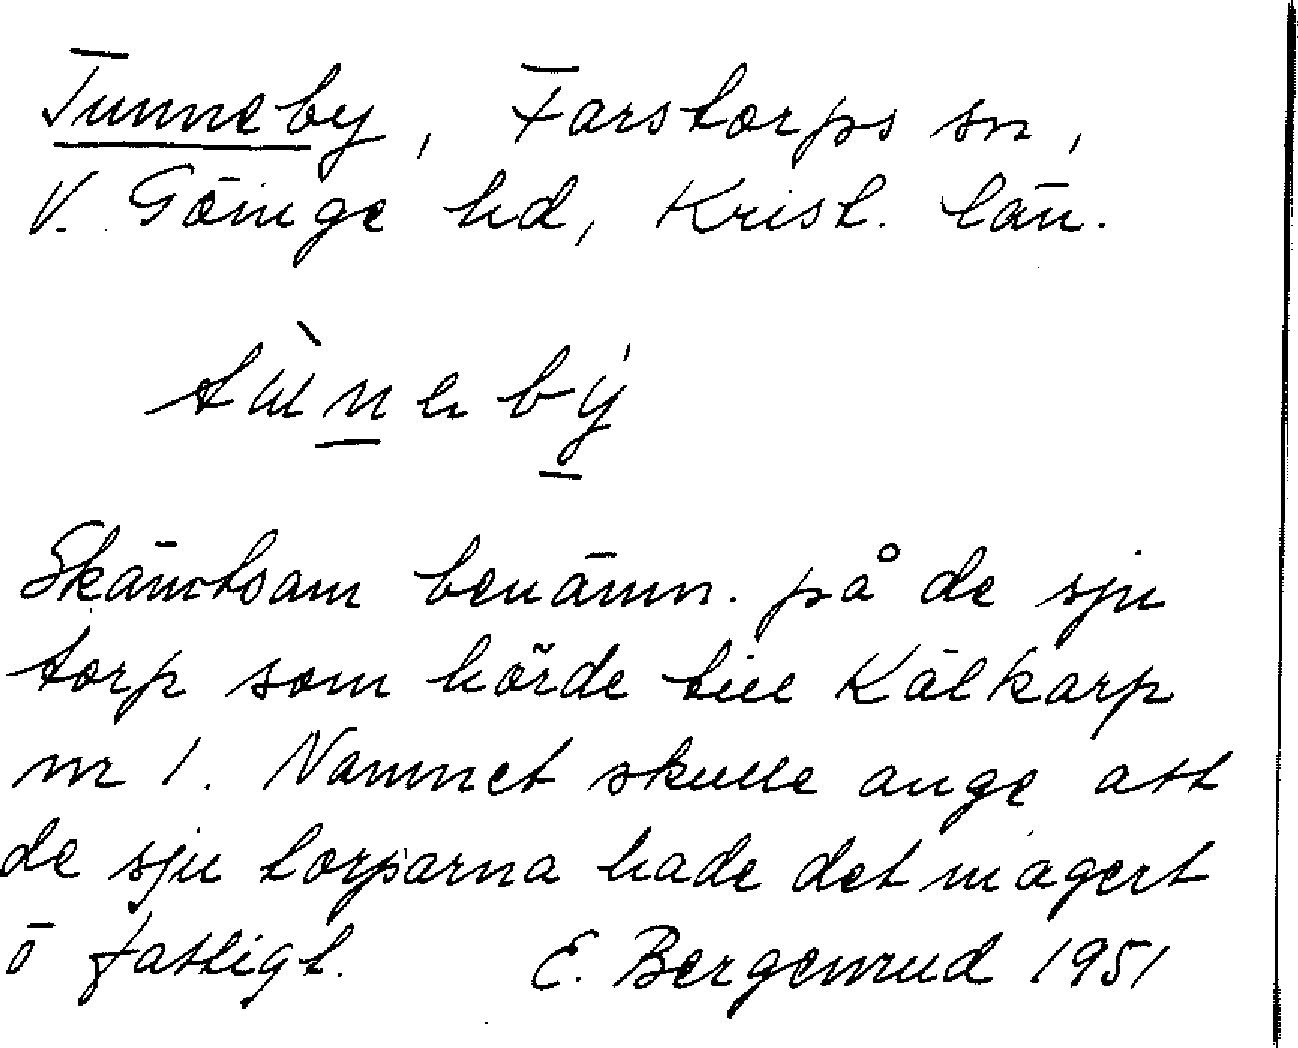 Tunneby, Farstorps sn,
V. Göinge hd, Krist. län.
tùnebý
Skämtsam benämn. på de sju
torp som hörde till Kälkarp
nr 1. Namnet skulle ange att
de sju torparna hade det magert
o fattigt. E. Bergenrud 1951